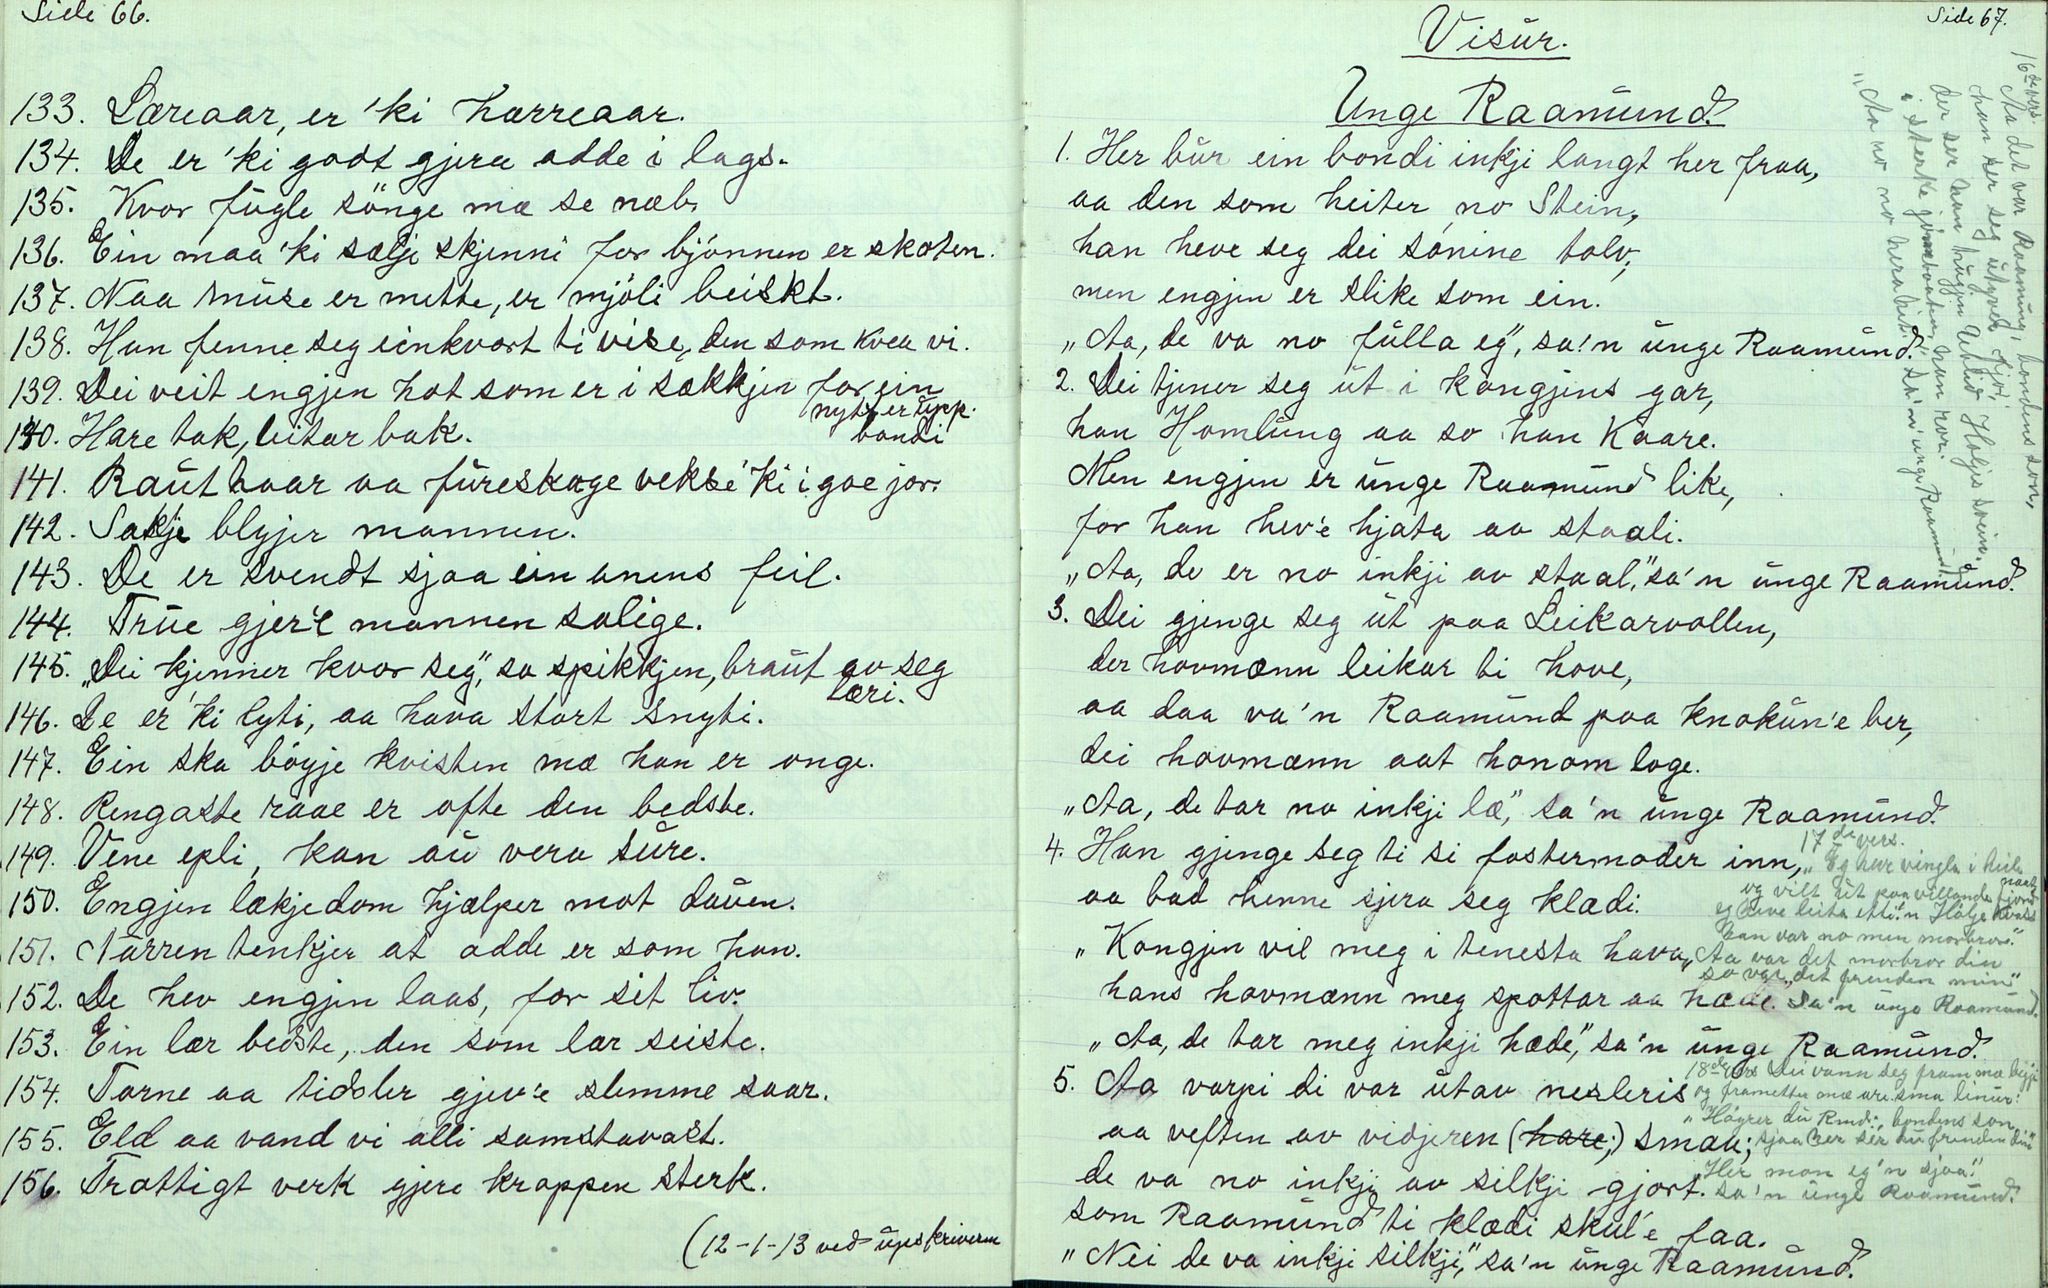 Side 66.
133. Læreaar, er 'ki herreaar.
134. De er 'ki godt gjera adde i lags.
135. Kvor fugle sönge mæ se næb.
136. Ein maa 'ki sælje skjenni for bjönnen er skoten.
137. Naa muse er mette, er mjöli beiskt.
138. Han fenne seg einkvort ti vise, den som kvea vi.
139. Dei veit engjen hot som er i sækkjen for ein
nyt, er upp.
bondi
140. Hare tak, leitar bak.
141. Raut haar aa fureskoge vekse 'ki i goe jor.
142. Sakje blyjer mannen.
143. De er svendt sjaa ein anens feil.
144. True gjer'e mannen salige.
145. „Dei kjenner kvor seg", sa spikkjen, braut av seg
læri.
146. De er 'ki lyti, aa hava stort snyti.
147. Ein ska böyje kvisten mæ han er onge.
148. Rengaste raae er ofte den bedste.
149. Vene epli, kan au vera sure.
150. Engjen lækjedom hjælper mot dauen.
151. Narren tenkjer at adde er som han.
152. De hev engjen laas, for sit liv.
153. Ein lær bedste, den som lær seiste.
154. Torne aa tidsler gjev'e slemme saar.
155. Eld aa vand vi alli samstavast.
156. Trottigt verk gjere kroppen sterk.
(12-1-13 ved
Side 67.
Visur.
Unge Raamund.
1. Her bur ein bondi inkji langt her fraa,
aa den som heiter no Stein,
han heve seg dei sonine tolv,
men engjen er slike som ein.
„Aa, de va no fulla eg", sa'n unge Raamund.
2. Dei tjener seg ut i kongjens gar,
han Homlung aa so han Kaare.
Men engjen er unge Raamund like,
for han hev'e hjata av staali.
„Aa, de er no inkji av staal," sa'n unge Raamund.
3. Dei gjenge seg ut paa Leikarvollen,
der hovmænn leikar ti hove,
aa daa va'n Raamund paa knokun'e ber,
dei hovmænn aat honom loge.
„Aa, de tar no inkji læ," sa'n unge Raamund.
4. Han gjenge seg ti si fostermoder inn,
aa bad henne sjera seg klædi.
„Kongjen vil meg i tenesta hava,
hans hovmænn meg spottar aa hæde.
„Aa, de tar meg inkji hæde," sa'n unge Raamund.
5. Aa varpi di var utav nesleris
aa veften av vidjeren (hare;) smaa;
de va no inkji av silkji gjort.
som Raamund ti klædi skul'e faa.
„Nei de va inkji silkji," sa'n unge Raamund.
16de vers.
Aa det var Raamung, bondens son,
han ser seg utyver fjor;
der ser han
i sterke jarnbaaten, han ror.
„Aa no no hera leit," sa'n unge Raamund.
17de vers.
„Eg har vingla i heile naatt
og vilt ut paa villande fjord
eg heve leita ette'n Holge kvass
han var no min morbror."
„Aa var det morbror din
so var det frenden min"
sa'n unge Raamund.
18de vers Du vann deg fram mæ
og frametter mæ are sma linur.
„Höyrer du Rmd:, bondens son,
sjaa her ser du frenden din"
„Her mon eg'n sjaa".
sa'n unge Raamund.